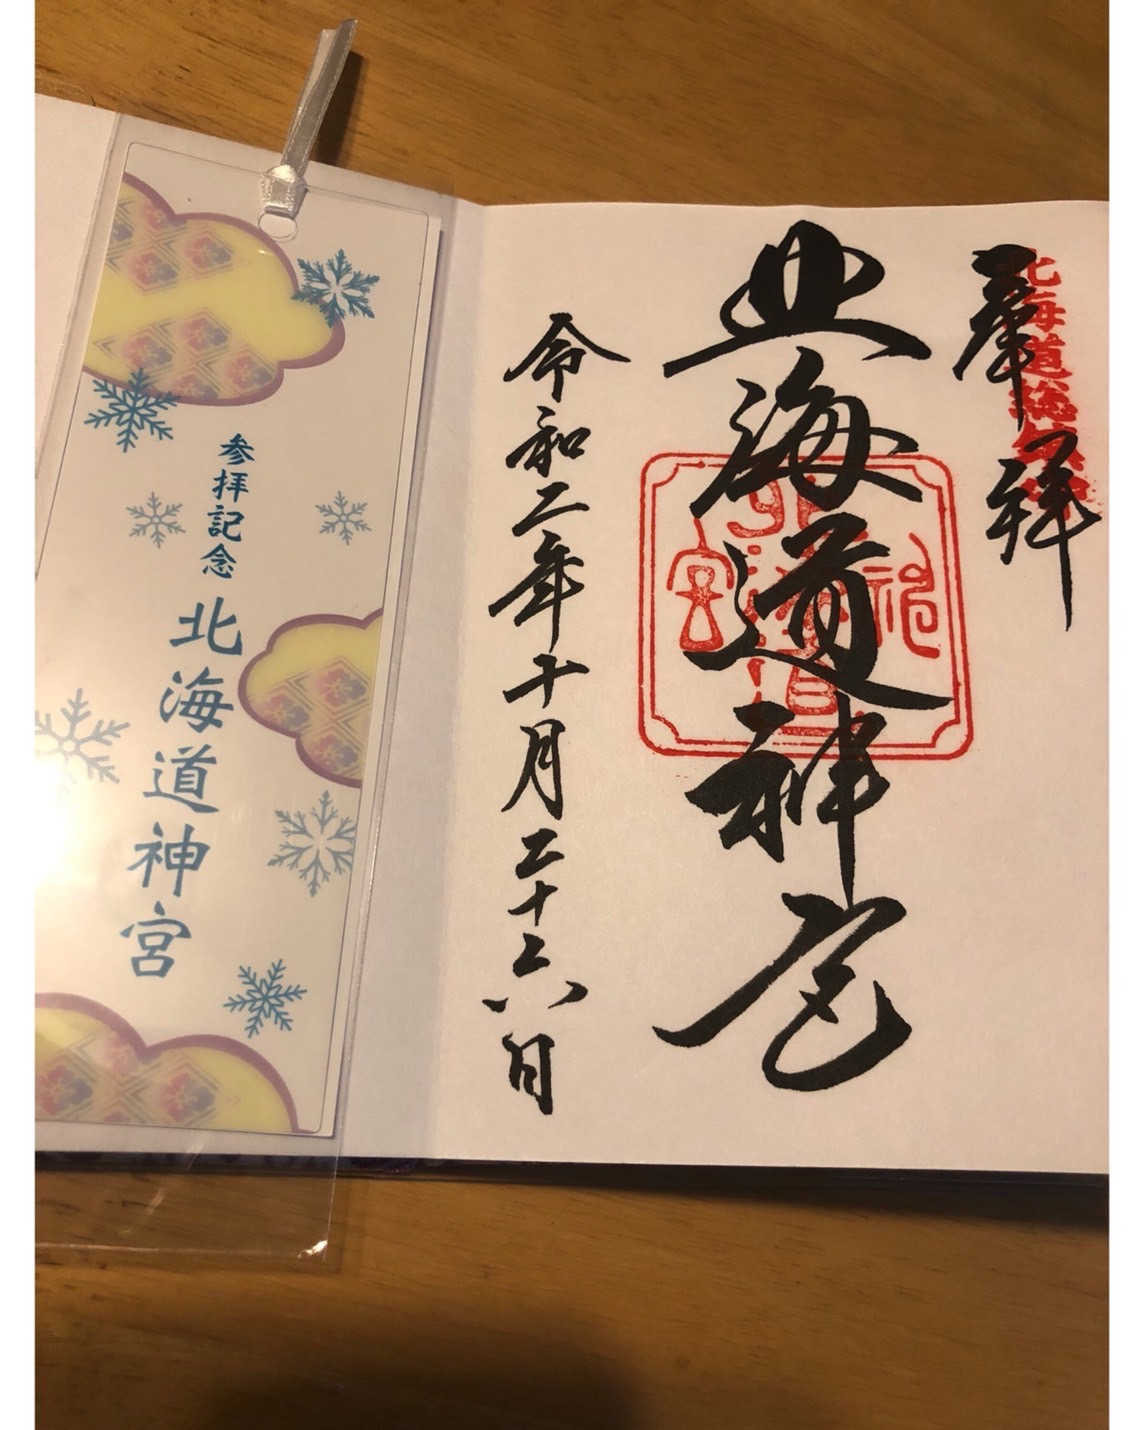 奉拝
北海道総鎮守
北海道神宮
令和二年十月二十六日
参拝記念
北海道神宮